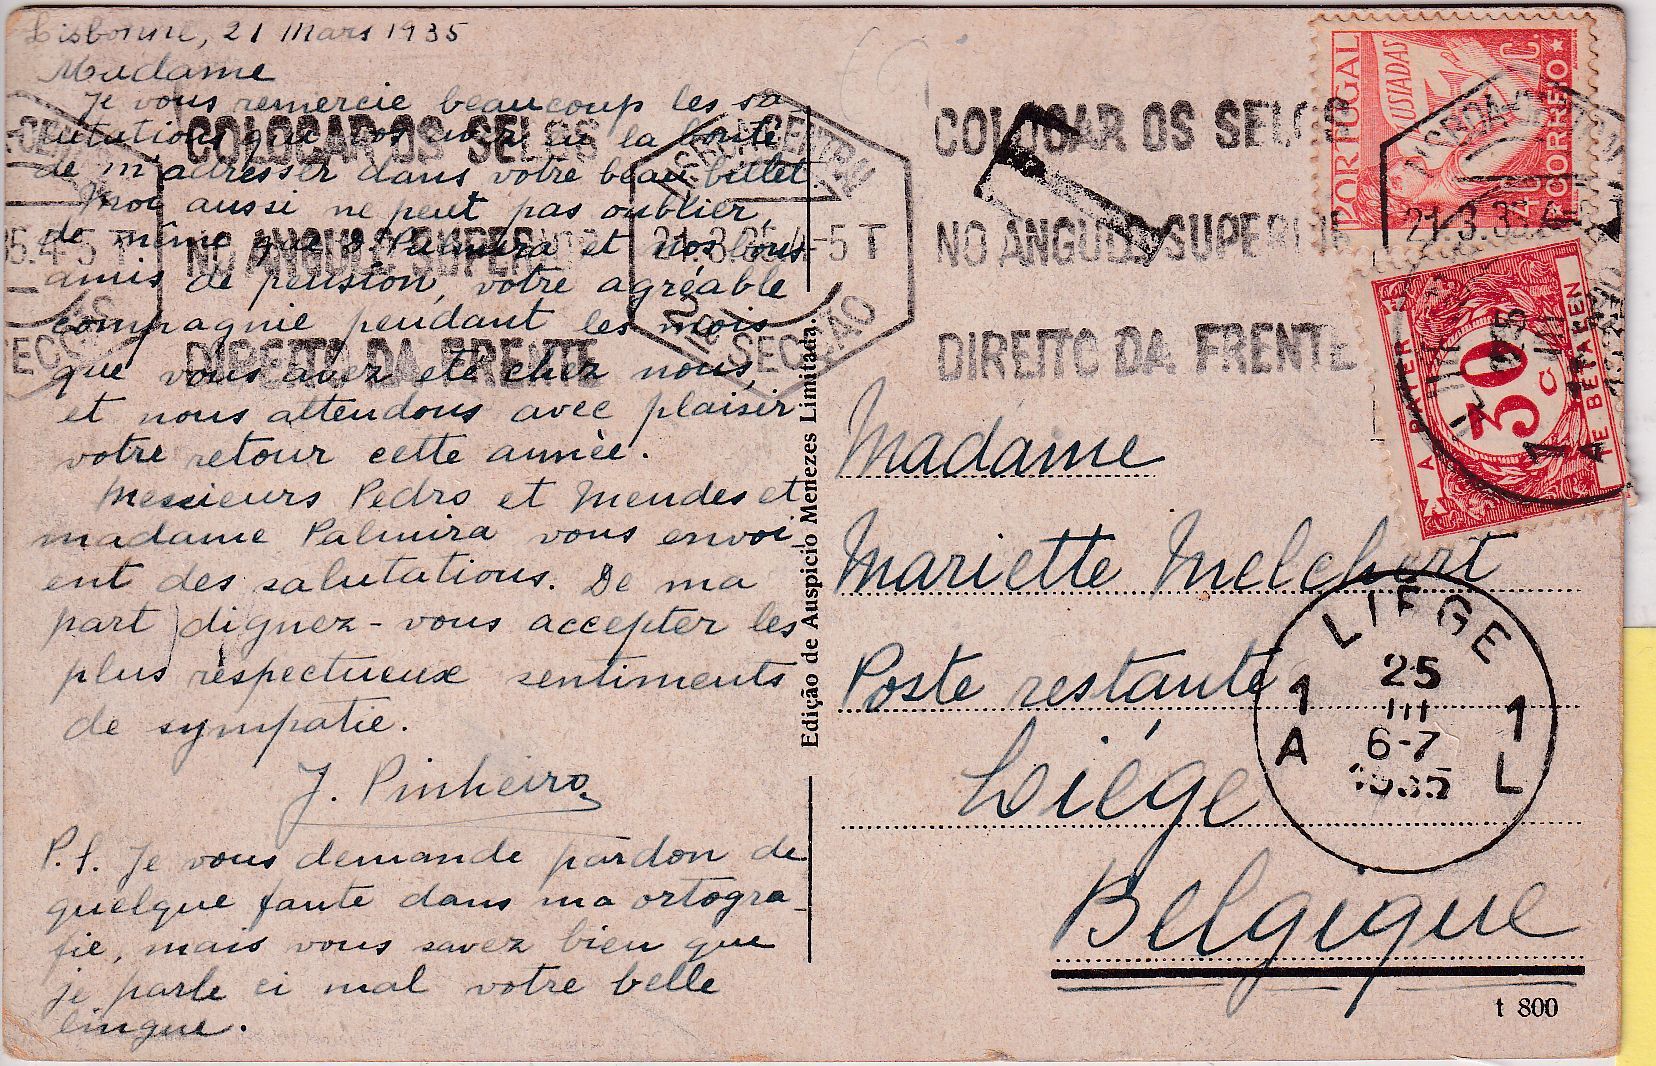 Lisbonne, 21 Mars 1935
Madame
Je vous remercie beaucoup les sa
lutations que vos avez eu la bonté
de m'adresser dans votre beau billet
Moi aussi ne peut pas oublier,
de même que d. Palmira et nos bons
amis de pension, votre agréable
compagnie pendant les mois
que vous avez été chez nous,
et nous attendons avec plaisir
votre retour cette année.
Messieurs Pedro et Mendes et
madame Palmira vous envoi
ent des salutations. De ma
part dignez-vous accepter les
plus respectueux sentiments
de sympatie.
J. Pinheiro
P.S. Je vous demande pardon de
quelque faute dans ma ortogra_
fie, mais vous savez bien que
je parle ci mal votre belle
lingue.
COLOCAR OS SELOS
NO ANGULO SUPERIOR
DIREITO DA FRENTE
LISBOA CENTRAL
21.3.35.4-5T
2ª SECÇÃO
COLOCAR OS SELOS
NO ANGULO SUPERIOR
DIREITO DA FRENTE
Edição de Auspicio Menezes Limitada.
PORTUGAL
LUSIADAS
40 C.
CORREIO
21.3.35.4
A PAYER
30
C
TE BETALEN
Madame
Mariette Melchert
Poste restante
Liége
Belgique
LIEGE
1 25 1
III
A 6-7 L
1935
t 800